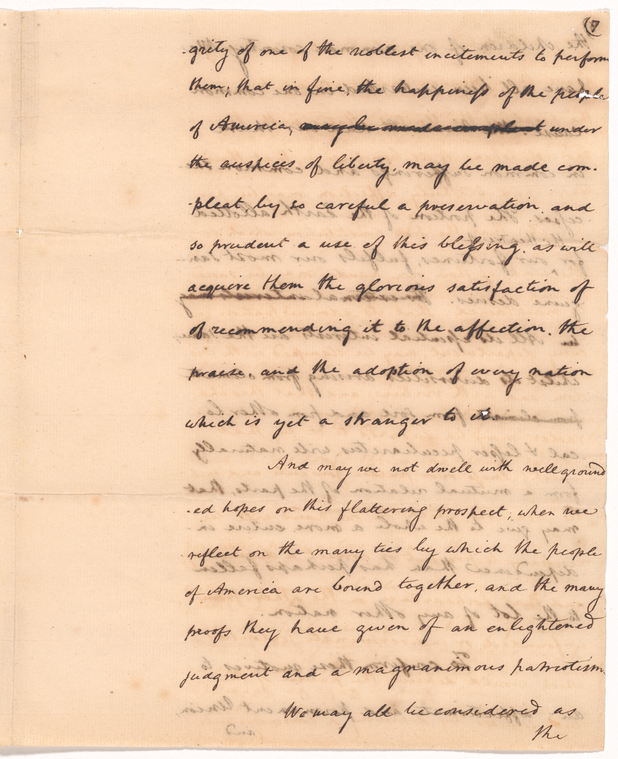 (7
-grity of one of the noblest incitements to perform
them; that in fine, the happiness of the people
of America, may be made compleat under
the auspices of liberty, may be made com-
-pleat by so careful a preservation, and
so prudent a use of this blessing, as will
acquire them the glorious satisfaction of
of recommending it to the affection, the
praise, and the adoption of every nation
which is yet a stranger to it.
And may we not dwell with well ground
-ed hopes on this flattering prospect; when we
reflect on the many ties by which the people
of America are bound together, and the many
proofs they have given of an enlightened
judgment and a magnanimous patriotism.
We may all be considered as
the